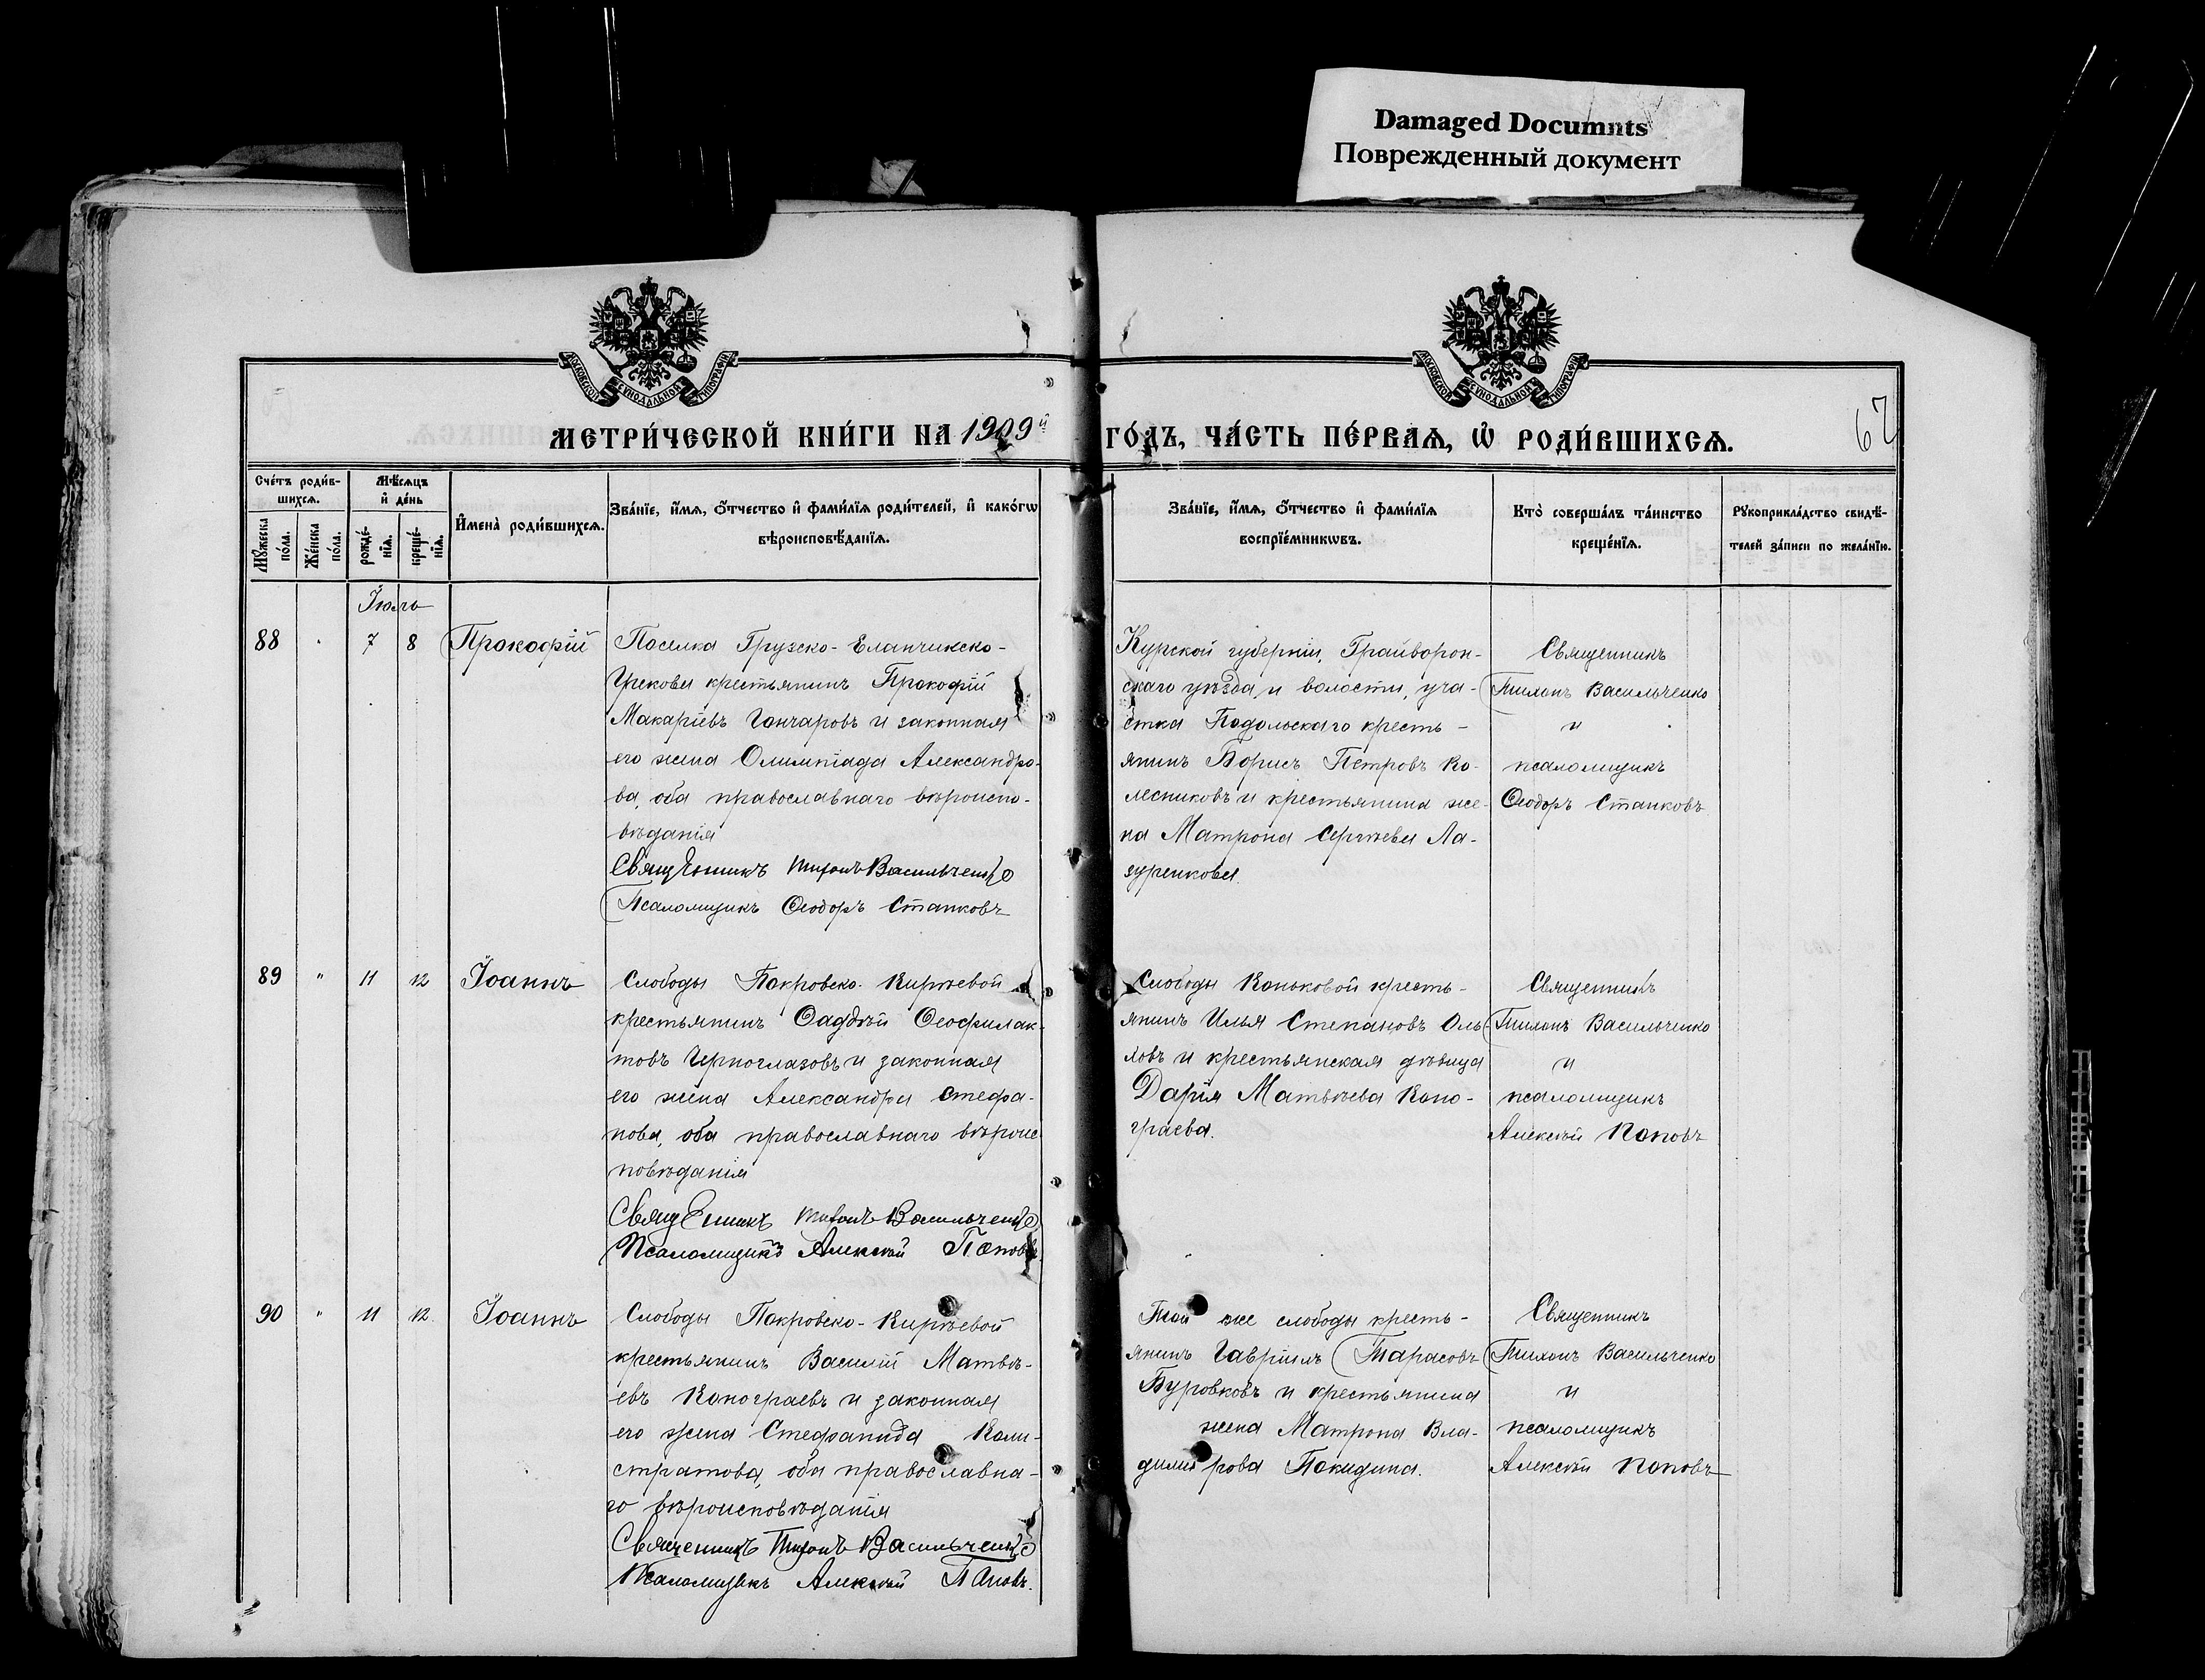 Damaged Documnts
Поврежденный документ
МОСКОВСКОЙ СѴНОДАЛЬНОЙ ТИПОГРАФІИ
МОСКОВСКОЙ СѴНОДАЛЬНОЙ ТИПОГРАФІИ
МЕТРИ́ЧЕСКОЙ КНИ́ГИ НА 1909й ГО́ДЪ, ЧА́СТЬ ПЕ́РВАѦ, Ѡ РОДИ́ВШИХСѦ.
62
Сче́тъ роди́в-
шихсѧ.
Мꙋ́жеска по́ла.
Же́нска по́ла.
Мѣ́сѧцъ
и҆ де́нь
рожде́-
нїѧ.
креще́-
нїѧ.
И҆мена̀ роди́вшихсѧ.
Зва́нїе, и҆́мѧ, ѻ҆́тчество и҆ фами́лїѧ роди́телей, и҆ како́гѡ
вѣроисповѣ́данїѧ.
Зва́нїе, и҆́мѧ, ѻ҆́тчество и҆ фами́лїѧ
воспрїе́мникѡвъ.
Кто̀ соверша́лъ та́инство
креще́нїѧ.
Рꙋкоприкла́дство свидѣ́-
телей за́писи по жела́нїю.
Іюль
88 " 7 8 Прокофій
Поселка Грузско-Еланчикско-
Грекова крестьянинъ Прокофій
Макаріевъ Гончаровъ и законная
его жена Олимпіада Александро-
ва, оба православнаго вѣроиспо-
вѣданія
Священникъ Тихонъ Васильченко
Псаломщикъ Ѳеодоръ Станковъ
Курской губерніи, Грайворон-
скаго уѣзда и волости, уча-
стка Подольскаго кресть-
янинъ Борисъ Петровъ Ко-
лесниковъ и крестьянина же-
на Матрона Сергѣева Ла-
зуренкова.
Священникъ
Тихонъ Васильченко
и
псаломщикъ
Ѳеодоръ Станковъ
89 " 11 12 Іоаннъ
Слободы Покровско-Кирѣевой
крестьянинъ Ѳаддѣй Ѳеофилак-
товъ Черноглазовъ и законная
его жена Александра Стефа-
нова, оба православнаго вѣроис
повѣданія
Священникъ Тихонъ Васильченко
Псаломщикъ Алексѣй Поповъ
Слободы Коньковой кресть-
янинъ Илья Степановъ Оль-
ховъ и крестьянская дѣвица
Дарія Матвѣева Коно-
граева.
Священникъ
Тихонъ Васильченко
и
псаломщикъ
Алексѣй Поповъ
90 " 11 12 Іоаннъ
Слободы Покровско-Кирѣевой
крестьянинъ Василій Матвѣ-
евъ Конограевъ и законная
его жена Стефанида Кали-
стратова, оба православна-
го вѣроисповѣданія
Священникъ Тихонъ Васильченко
Псаломщикъ Алексѣй Поповъ.
Той же слободы кресть-
янинъ Гавріилъ Тарасовъ
Буровковъ и крестьянина
жена Матрона Вла-
димирова Покидина.
Священникъ
Тихонъ Васильченко
и
псаломщикъ
Алексѣй Поповъ